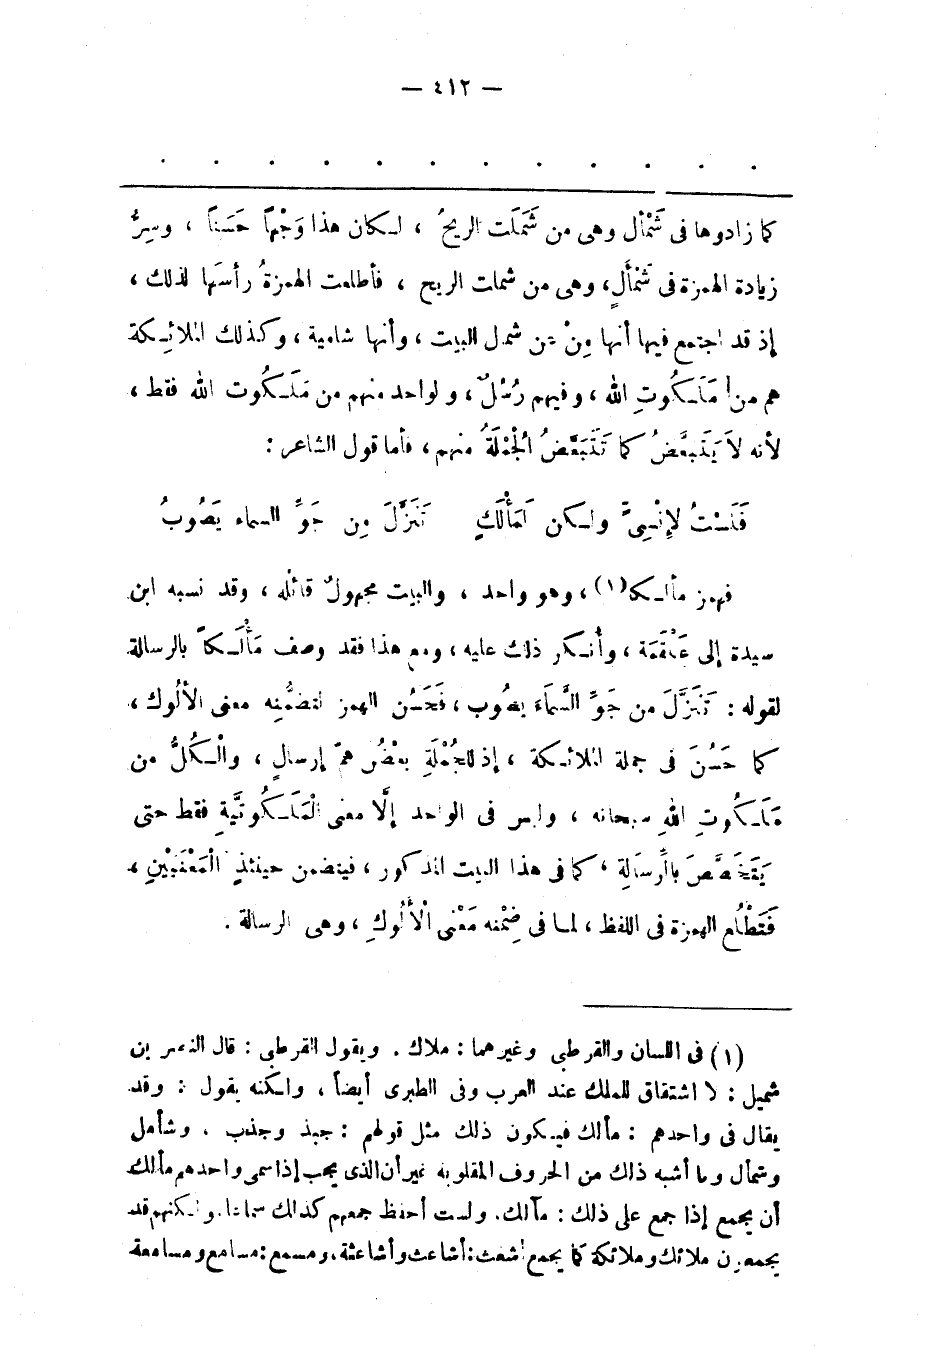 — ٤١٢ —
. . . . . . . . . . . .
كما زادوها فى شَمْأل وهى من شَمَلَت الريحُ ، لـكان هذا وَجْهاً حَسَناً ، وسِرُّ
زيادة الهمزة فى شَمْأَلٍ، وهى من شملت الريح ، فأطلعت الهمزةُ رأسَها لذلك ،
إذ قد اجتمع فيها أنها مِنْ عن شمل البيت ، وأنها شامية ، وكذلك الملائِـكة
هم من مَلَـكُوتِ الله ، وفيهم رُسُلٌ ، ولواحد منهم من مَلَـكُوت الله فقط ،
لأنه لاَ يَتَبعَّضُ كما تَتَبَعَّضُ الْجُمْلَةُ منهم ، فأما قول الشاعر :
فَلَسْتُ لإِنْسِىٍّ ولـكن لَمَأْلَكٍ تَنَزَّلَ مِن جَوِّ السماء يَصُوبُ
فهمز مألـكا(١) ، وهو واحد ، والبيت مجهولٌ قائله ، وقد نسبه ابن
سيدة إلى عَلْقَمَة ، وأُنـكر ذلك عليه ، ومع هذا فقد وصف مَأْلَـكاً بالرسالة
لقوله : تَنَزَّلَ من جَوِّ السَّمَاءَ يصُوب ، فَحَسُن الهمز لتضمُّنِه معنى الألُوك ،
كما حَسُنَ فى جملة الملائـكة ، إذ للجُمْلَةِ بعْضُ هم إرسالٍ ، والْـكُلُّ من
مَلَـكُوتِ اللهِ سبحانه ، وليس فى الواحد إلَّا معنى الْمَلَـكُوتيَّةِ فقط حتى
يَتَخَصَّصَ بالرِّسَالَةِ ، كما فى هذا البيت المذكور ، فيتضمن حينئذٍ الْمَعْنَيَيْنِ ،
فَتَطْلُع الهمزة فى اللفظ ، لمـا فى ضِمْنه مَعْنى الْأَلُوكِ ، وهى الرسالة .
(١) فى اللسان والقرطبى وغيرهما : ملاك . ويقول القرطبى : قال النضر بن
شميل : لا اشتقاق للملك عند العرب وفى الطبرى أيضاً ، ولـكنه يقول : وقد
يقال فى واحدهم : مألك فيـكون ذلك مثل قولهم : جبذ وجذب ، وشأمل
وشمأل وما أشبه ذلك من الحروف المقلوبة غير أن الذى يجب إذا سمى واحدهم مألك
أن يجمع إذا جمع على ذلك : مآلك. ولست أحفظ جمعهم كذلك سماعا. ولـكنهم قد
يجمعون ملائك وملائكة كما يجمع أشعث : أشاعث وأشاعثة، ومسمع : مسامع ومسامعة